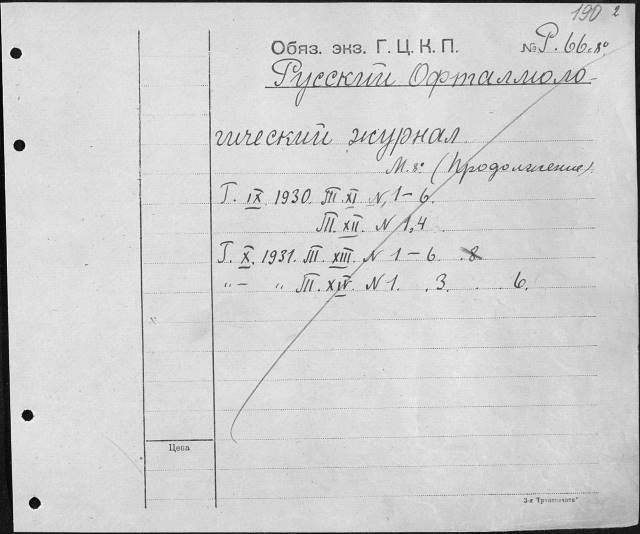 190 2
Обяз. экз. Г. Ц. К. П. № Р. 66. 8°
Русский Офталмоло-
гический журнал
М. 8° (Продолжение).
Г. IX 1930. Т. XI N 1 – 6.
Т. XII. N 1, 4
Г. X. 1931. Т. XIII. N 1 – 6. 8
„ – „ Т. XIV. N 1. . 3. . 6.
Цена
3-я